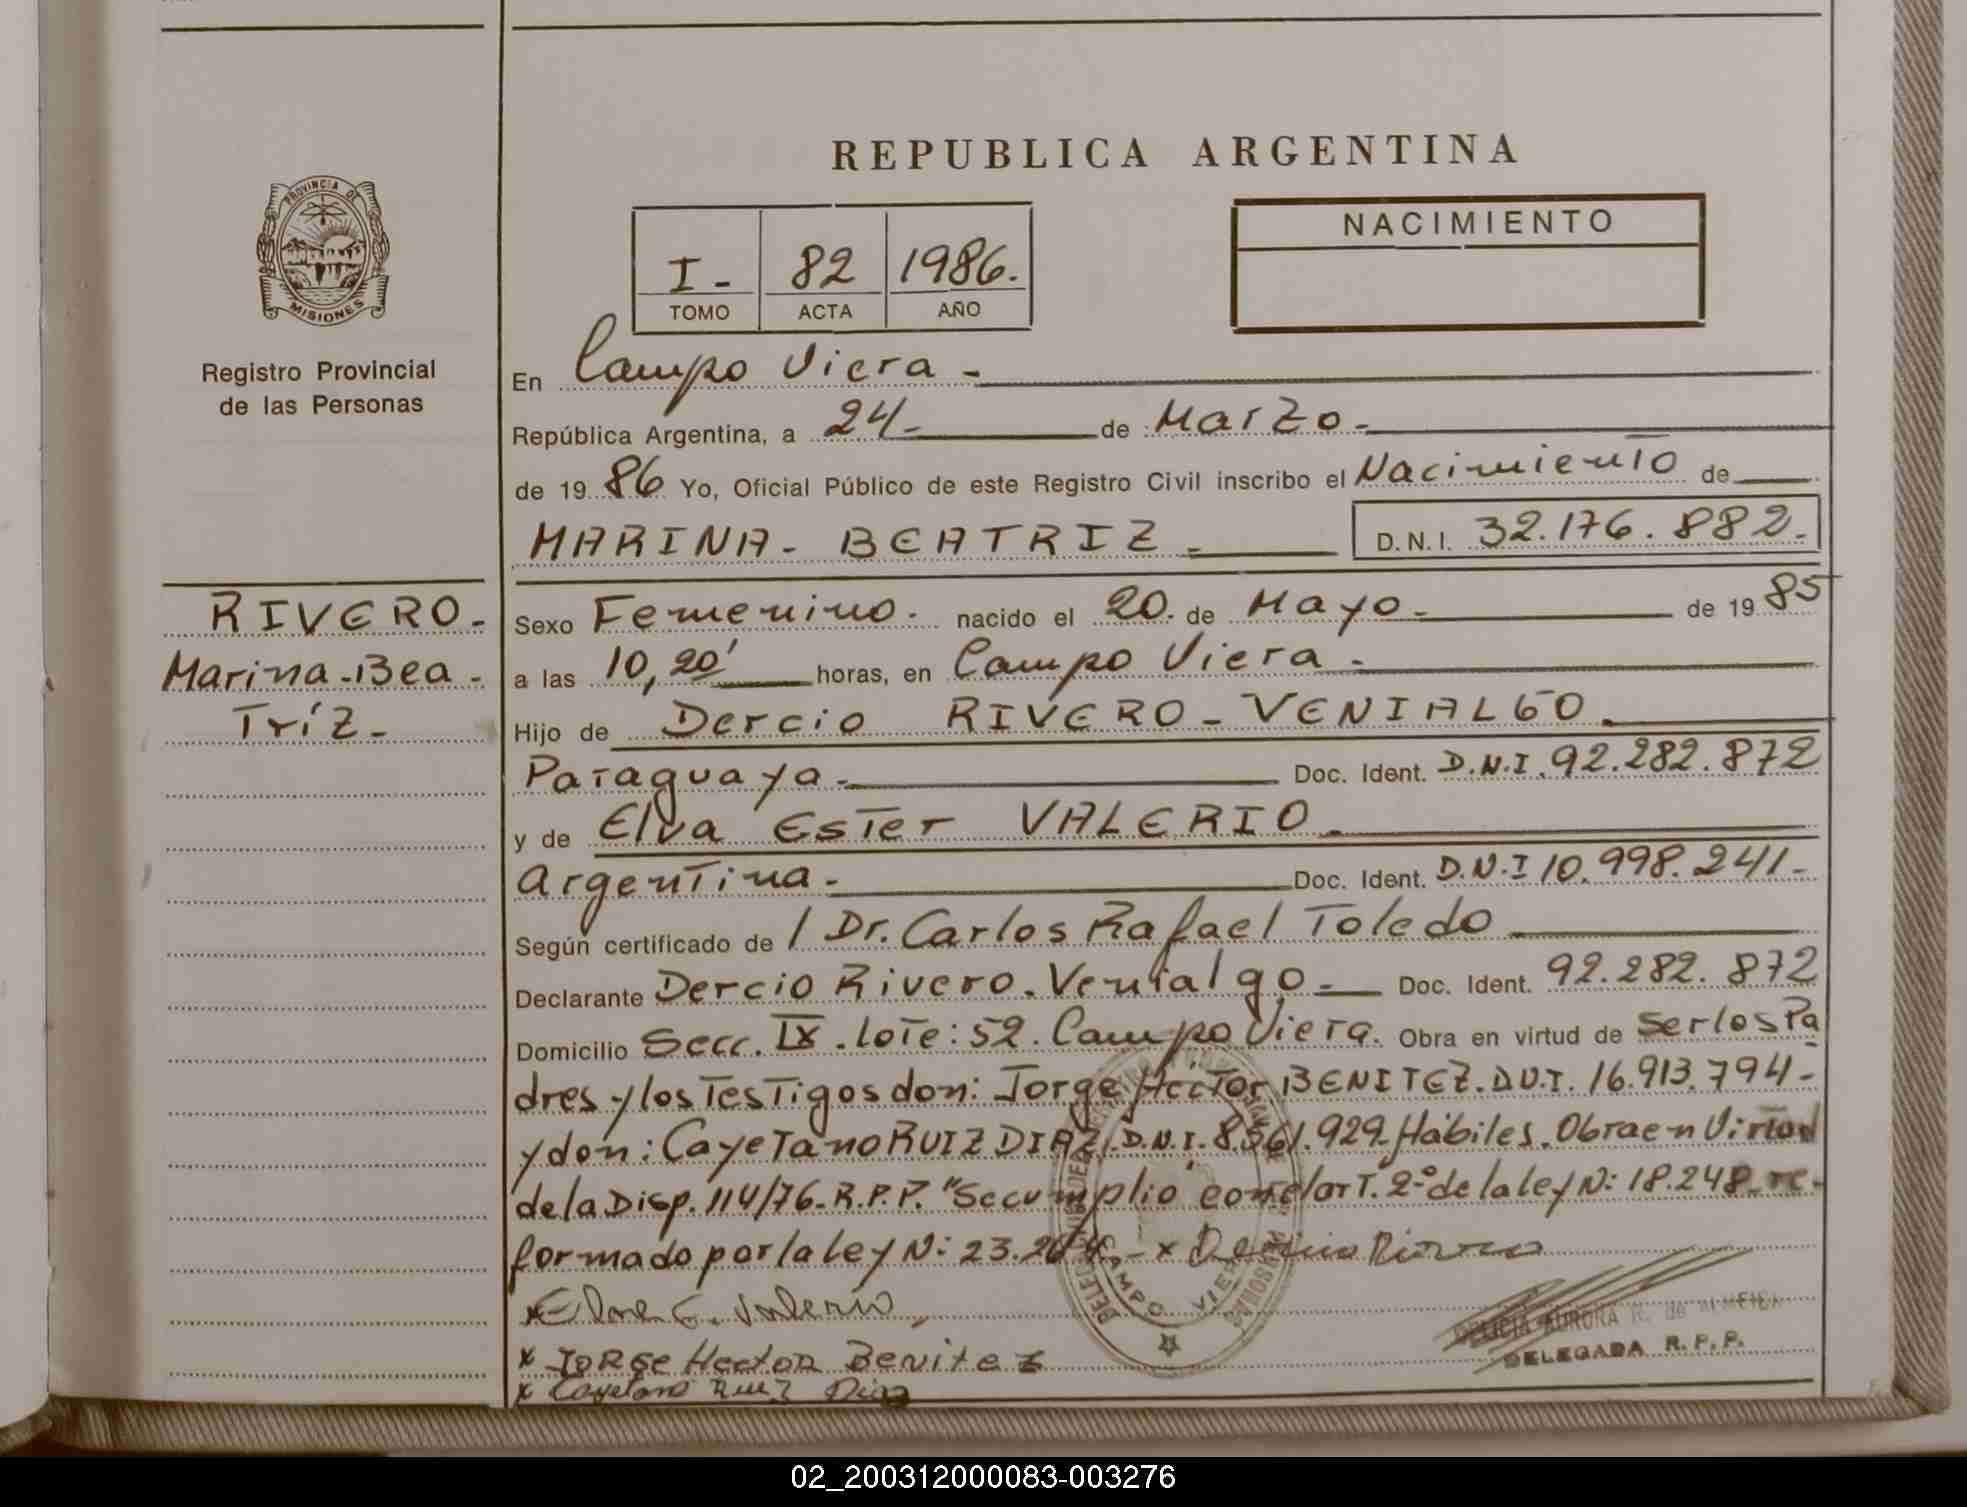 REPUBLICA ARGENTINA
PROVINCIA DE
MISIONES
Registro Provincial
de las Personas
I- 82 1986.
TOMO ACTA AÑO
NACIMIENTO
En Campo Viera -
República Argentina, a 24- de Marzo-
de 1986 Yo, Oficial Público de este Registro Civil inscribo el Nacimiento de
MARINA- BEATRIZ- D.N.I. 32.176.882.-
RIVERO-
Marina-Bea-
Tríz-
Sexo Femenino. nacido el 20. de Mayo- de 1985
a las 10,20' horas, en Campo Viera -
Hijo de Dercio RIVERO-VENIALGO.
Paraguaya- Doc. Ident. D.N.I. 92.282.872
y de Elva Ester VALERIO.
argentina- Doc. Ident. D.N.I 10.998.241-
Según certificado de / Dr. Carlos Rafael Toledo
Declarante Dercio Rivero. Venialgo- Doc. Ident. 92.282.872
Domicilio Secc. IX. lote: 52. Campo Viera. Obra en virtud de ser los Pa
dres y los Testigos don: Jorge Héctor BENITEZ. D.N.I. 16.913.794-
y don: Cayetano RUIZ DIAZ. D.N.I. 8.561.929. Hábiles. Obra en Virtud
de la Disp. 114/76-R.P.P. "Se cumplió con el art. 2º de la ley N: 18.248 re-
formado por la ley N: 23.264- x Dercio Rivero
x Elva E. Valerio
x Jorge Hector Benitez
x Cayetano Ruiz Diaz
CAMPO VIERA
DELICIA AURORA R. de ALMEIDA
DELEGADA R.P.P.
02_200312000083-003276